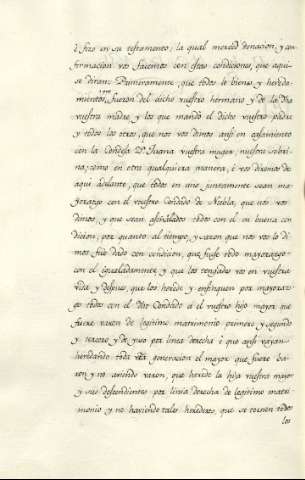 é fizo en su testamento; la qual merced donacion, y con-
firmacion vos facemos con estas condiciones, que aqui
se diran: Primeramente, que todos los bienes y hereda-
mientos, que fueron del dicho vuestro hermano y de la dha
vuestra madre y los que mandó el dicho vuestro padre
y todos los otros, que nos vos dimos ansi en casamiento
con la Condesa Dª Juana vuestra muger, nuestra sobri-
na; como en otra qualquiera manera, é vos diremos de
aqui adelante, que todos en uno juntamente sean ma-
yorazgo con el vuestro Condado de Niebla, que nos vos
dimos, y que sean asiñalados todos con el en buena con-
dicion; por quanto al tiempo, y sazon que nos vos lo di-
mos fue dado con condicion, que fuese todo mayorazgo
con el igualadamente y que los tengades vos en vuestra
vida y despues, que los herede y finquen por mayoraz-
go todos con el dho Condado á el vuestro hijo mayor que
fuere varon de legitimo matrimonio primero, y segundo
y tercero, y de yuso por linea derecha é que ansi vayan
heredando toda via generacion el mayor que fuere ba-
ron y no aviendo varon, que herede la hija vuestra mayor
y sus descendientes por linia derecha de legitimo matri-
monio y no haviendo tales herederos, que se tornen todos
los